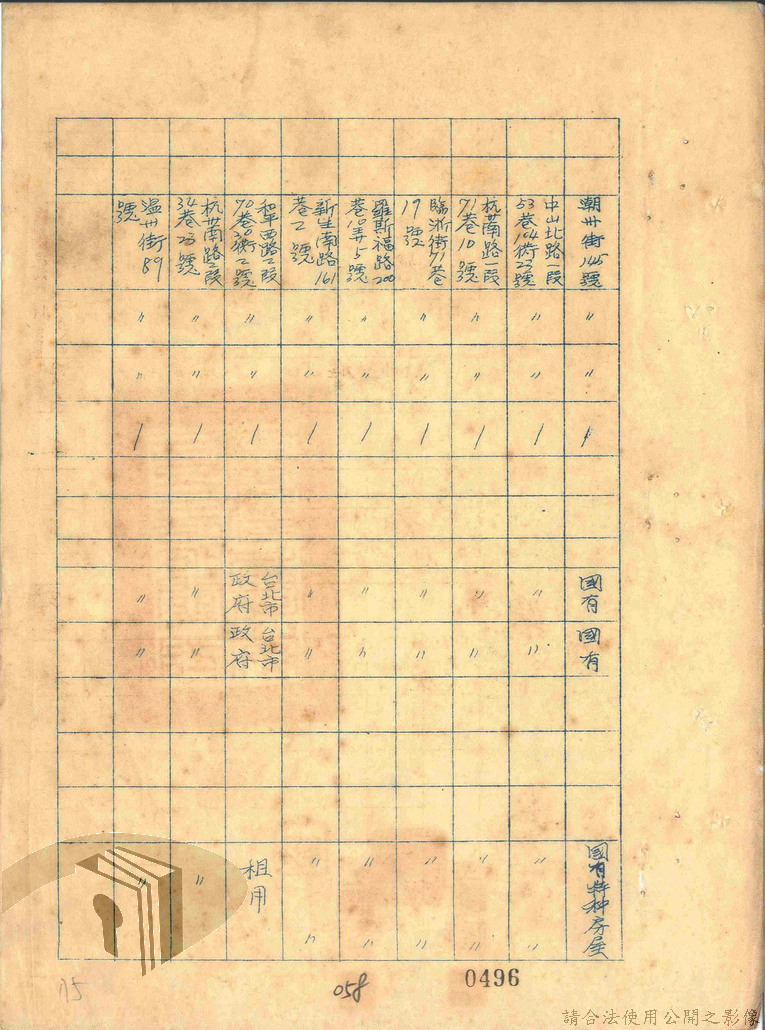 潮州街145號
〃
〃
1
國有
國有
國有特种房屋
中山北路一段
53巷104衖23號
〃
〃
1
〃
〃
〃
〃
杭州南路一段
71巷10號
〃
〃
1
〃
〃
〃
〃
臨沂街71巷
19號
〃
〃
1
〃
〃
〃
〃
羅斯福路200
巷10弄5號
〃
〃
1
〃
〃
〃
〃
新生南路161
巷2號
〃
〃
1
〃
〃
〃
〃
和平西路二段
70巷20衖2號
〃
〃
1
台北市
政府
台北市
政府
租用
杭州南路二段
34巷23號
〃
〃
1
〃
〃
〃
溫州街89
號
〃
〃
1
〃
〃
〃
175
058
0496
請合法使用公開之影像